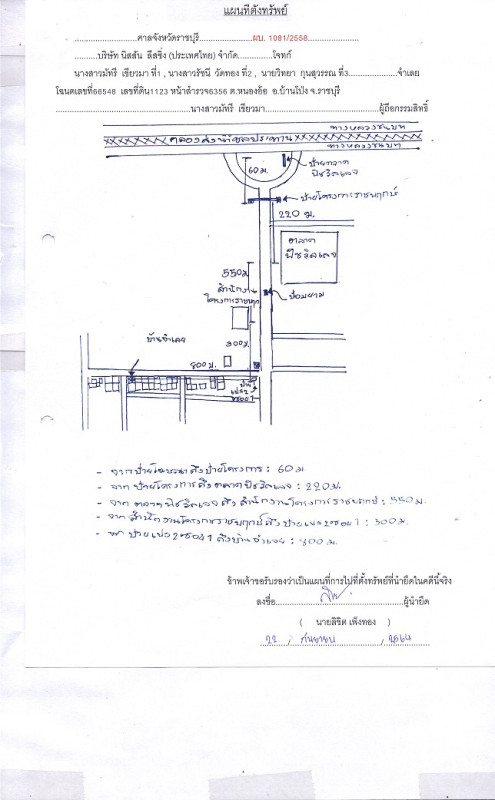 แผนที่ตั้งทรัพย์
ศาลจังหวัดราชบุรี ผบ. 1081/2556
บริษัท นิสสัน ลีสซิ่ง (ประเทศไทย) จำกัด โจทก์
นางสาวมัทรี เขียวมา ที่1 , นางสาวรัชนี วัดทอง ที่2 , นายวิทยา กุนสุวรรณ ที่3 จำเลย
โฉนดเลขที่66548 เลขที่ดิน1123 หน้าสำรวจ6356 ต.หนองอ้อ อ.บ้านโป่ง จ.ราชบุรี
นางสาวมัทรี เขียวมา ผู้ถือกรรมสิทธิ์
ทางหลวงชนบท
คลองส่งน้ำชลประทาน
ทางหลวงชนบท
60 ม.
ป้ายตลาด
พีชวิลเลจ
ป้ายโครงการราชพฤกษ์
220 ม.
ตลาด
พีชวิลเลจ
550 ม.
สำนักงาน
ป้อมยาม
บ้านจำเลย
300 ม.
800 ม.
- จากป้ายโฆษณาถึงป้ายโครงการ : 60 ม.
- จากป้ายโครงการถึงตลาดพีชวิลเลจ : 220 ม.
- จากตลาดพีชวิลเลจถึงสำนักงานโครงการราชพฤกษ์ : 550 ม.
- จากสำนักงานโครงการราชพฤกษ์ถึงป้ายเฟส2ซอย1 : 300 ม.
- จากป้ายเฟส2ซอย1ถึงบ้านจำเลย : 800 ม.
ข้าพเจ้าขอรับรองว่าเป็นแผนที่การไปที่ตั้งทรัพย์ที่นำยึดในคดีนี้จริง
ลงชื่อ ผู้นำยึด
( นายลิขิต เพ็งทอง )
22 / กันยายน / 2564